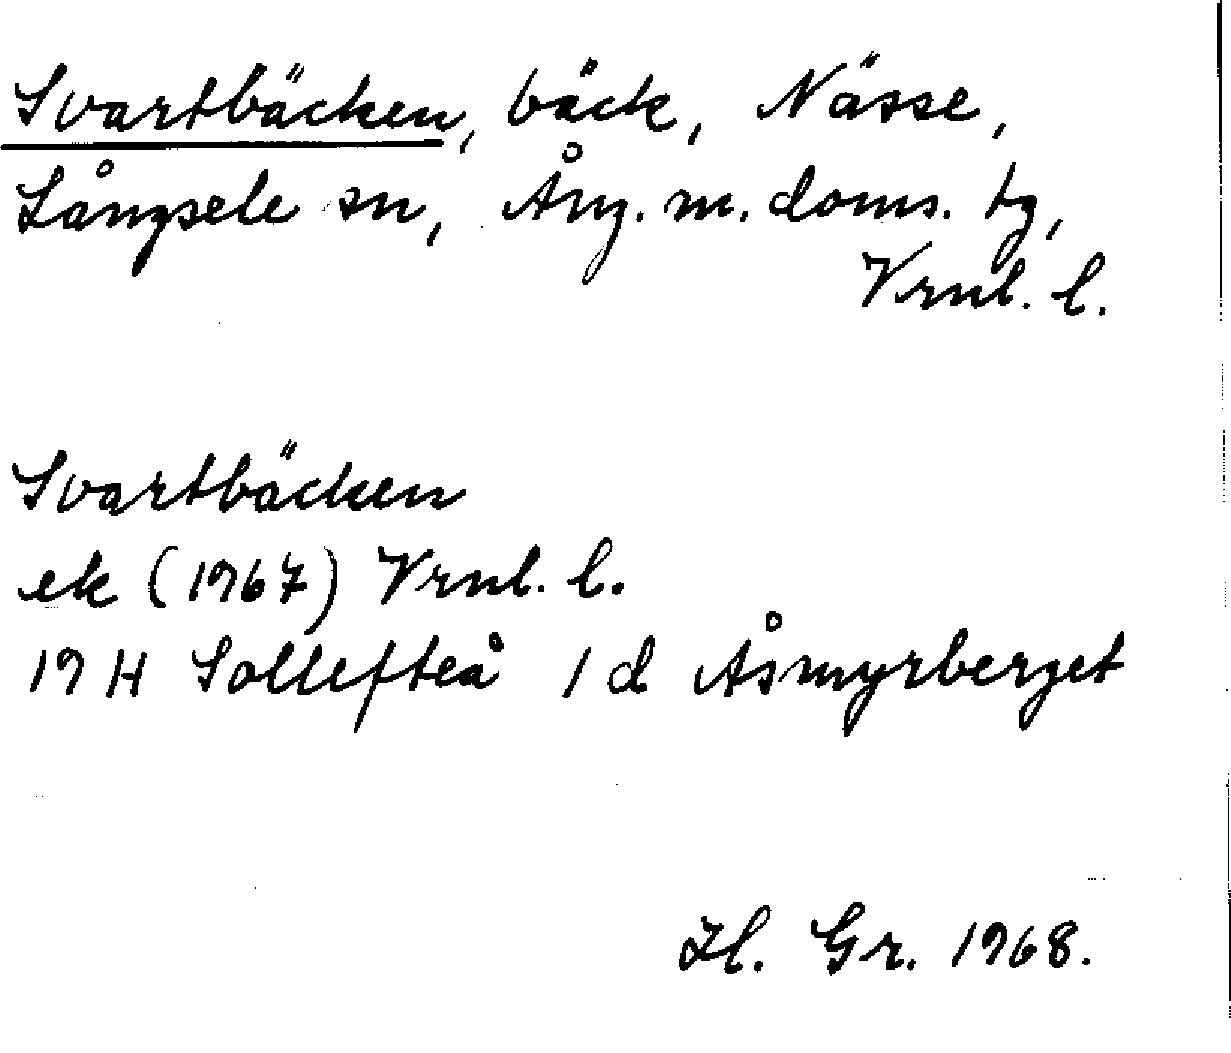 Svartbäcken, bäck, Nässe,
Långsele sn, Ång. m. doms. tg,
Vrnl. l.
Svartbäcken
ek (1967) Vrnl. l.
19 H Sollefteå 1 d Åsmyrberget
Hl. Gr. 1968.